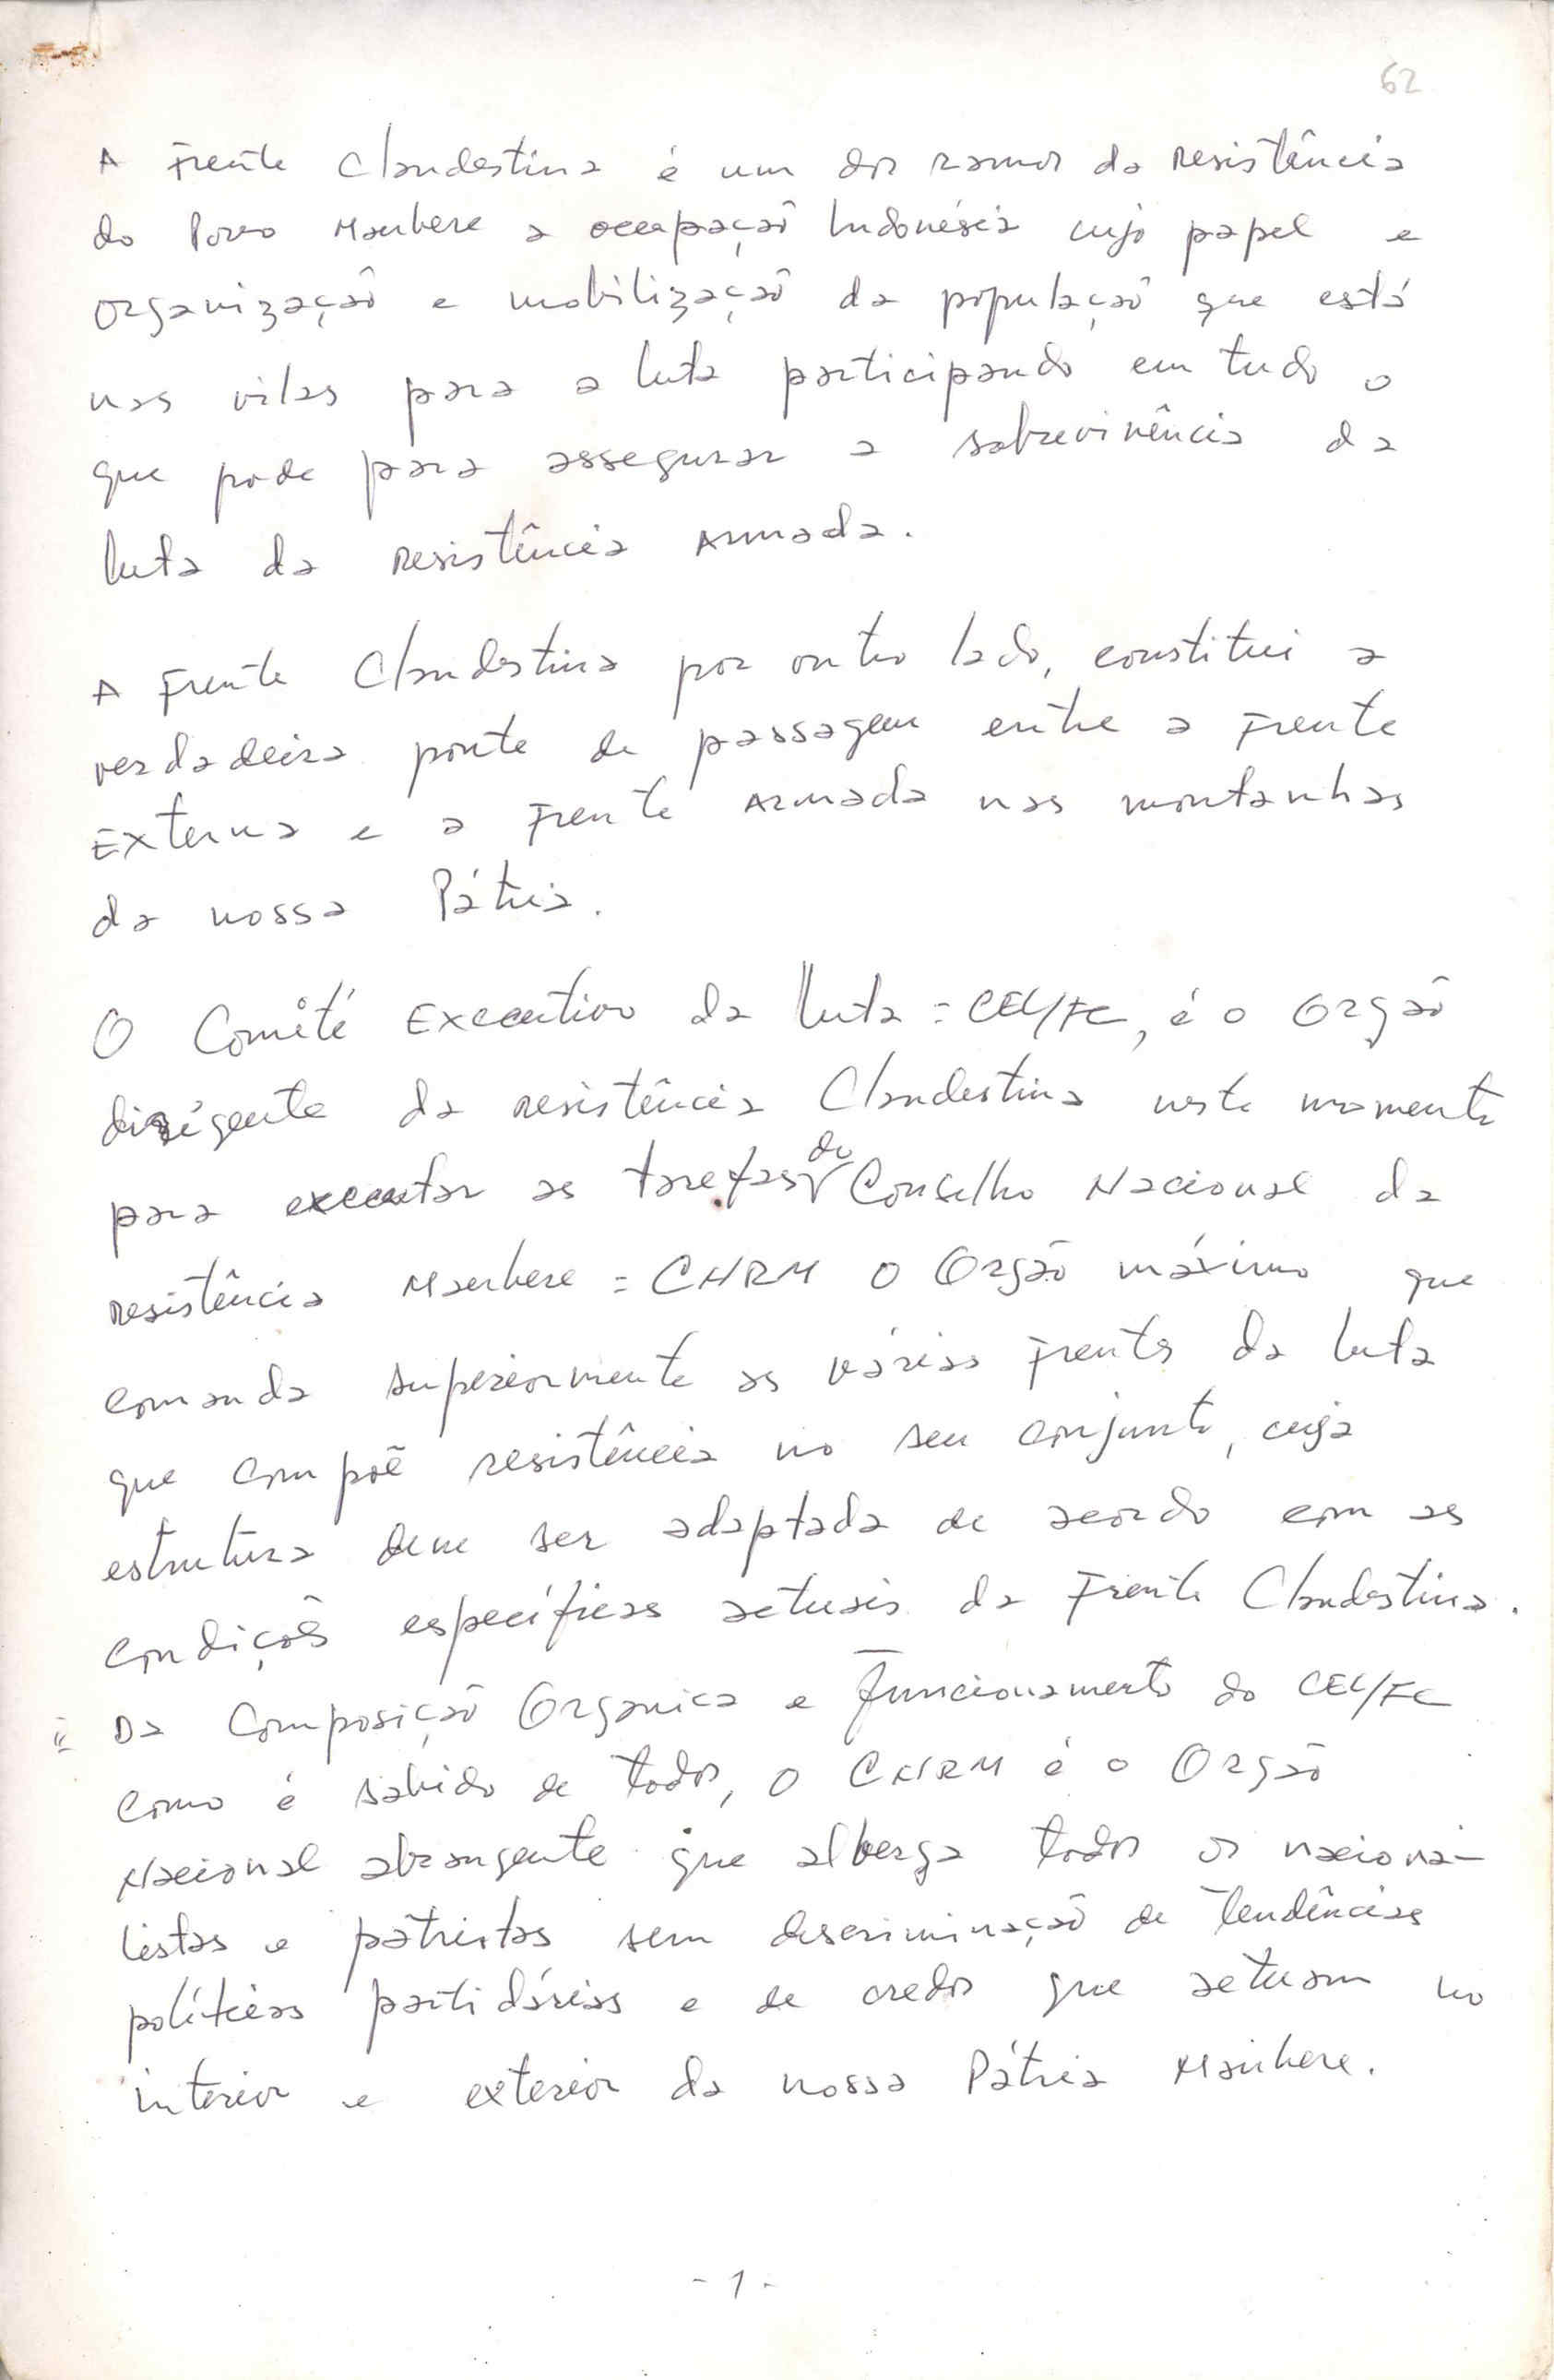 62
A Frente Clandestina é um dos ramos da resistência
do Povo Maubere a ocupação Indonésia cujo papel e
organização e mobilização da população que está
nas vilas para a luta participando em tudo o
que pode para assegurar a sobrevivência da
luta da resistência Armada.
A Frente Clandestina por outro lado, constitui a
verdadeira ponte de passagem entre a Frente
Externa e a Frente Armada nas montanhas
da nossa Pátria.
O Comité Executivo da luta = CEL/FC, é o Orgão
dirigente da resistência Clandestina neste momento
para executar as tarefas do Conselho Nacional da
resistência Maubere = CNRM o Orgão máximo que
comanda superiormente as várias Frentes da luta
que compõe resistência no seu conjunto, cuja
estrutura deve ser adaptada de acordo com as
condições específicas actuais da Frente Clandestina.
= Da Composição Organica e Funcionamento do CEL/FC
Como é sabido de todos, o CNRM é o Orgão
Nacional abrangente que alberga todos os naciona-
listas e pátriotas sem descriminação de tendências
políticas partidárias e de credos que actuam no
interior e exterior da nossa Pátria Maubere.
- 1 -